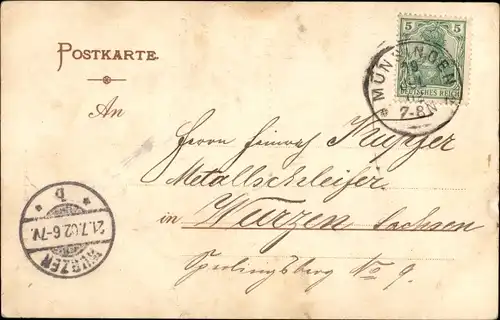 POSTKARTE.
An
Herrn Heinrich Kupfer
Metallschleifer
in Wurzen Sachsen
Sperlingsberg No 9.
5 5
DEUTSCHES REICH
MÜNSINGEN
19
7-8N
WURZEN
21.7.02.6-7N.
* b *